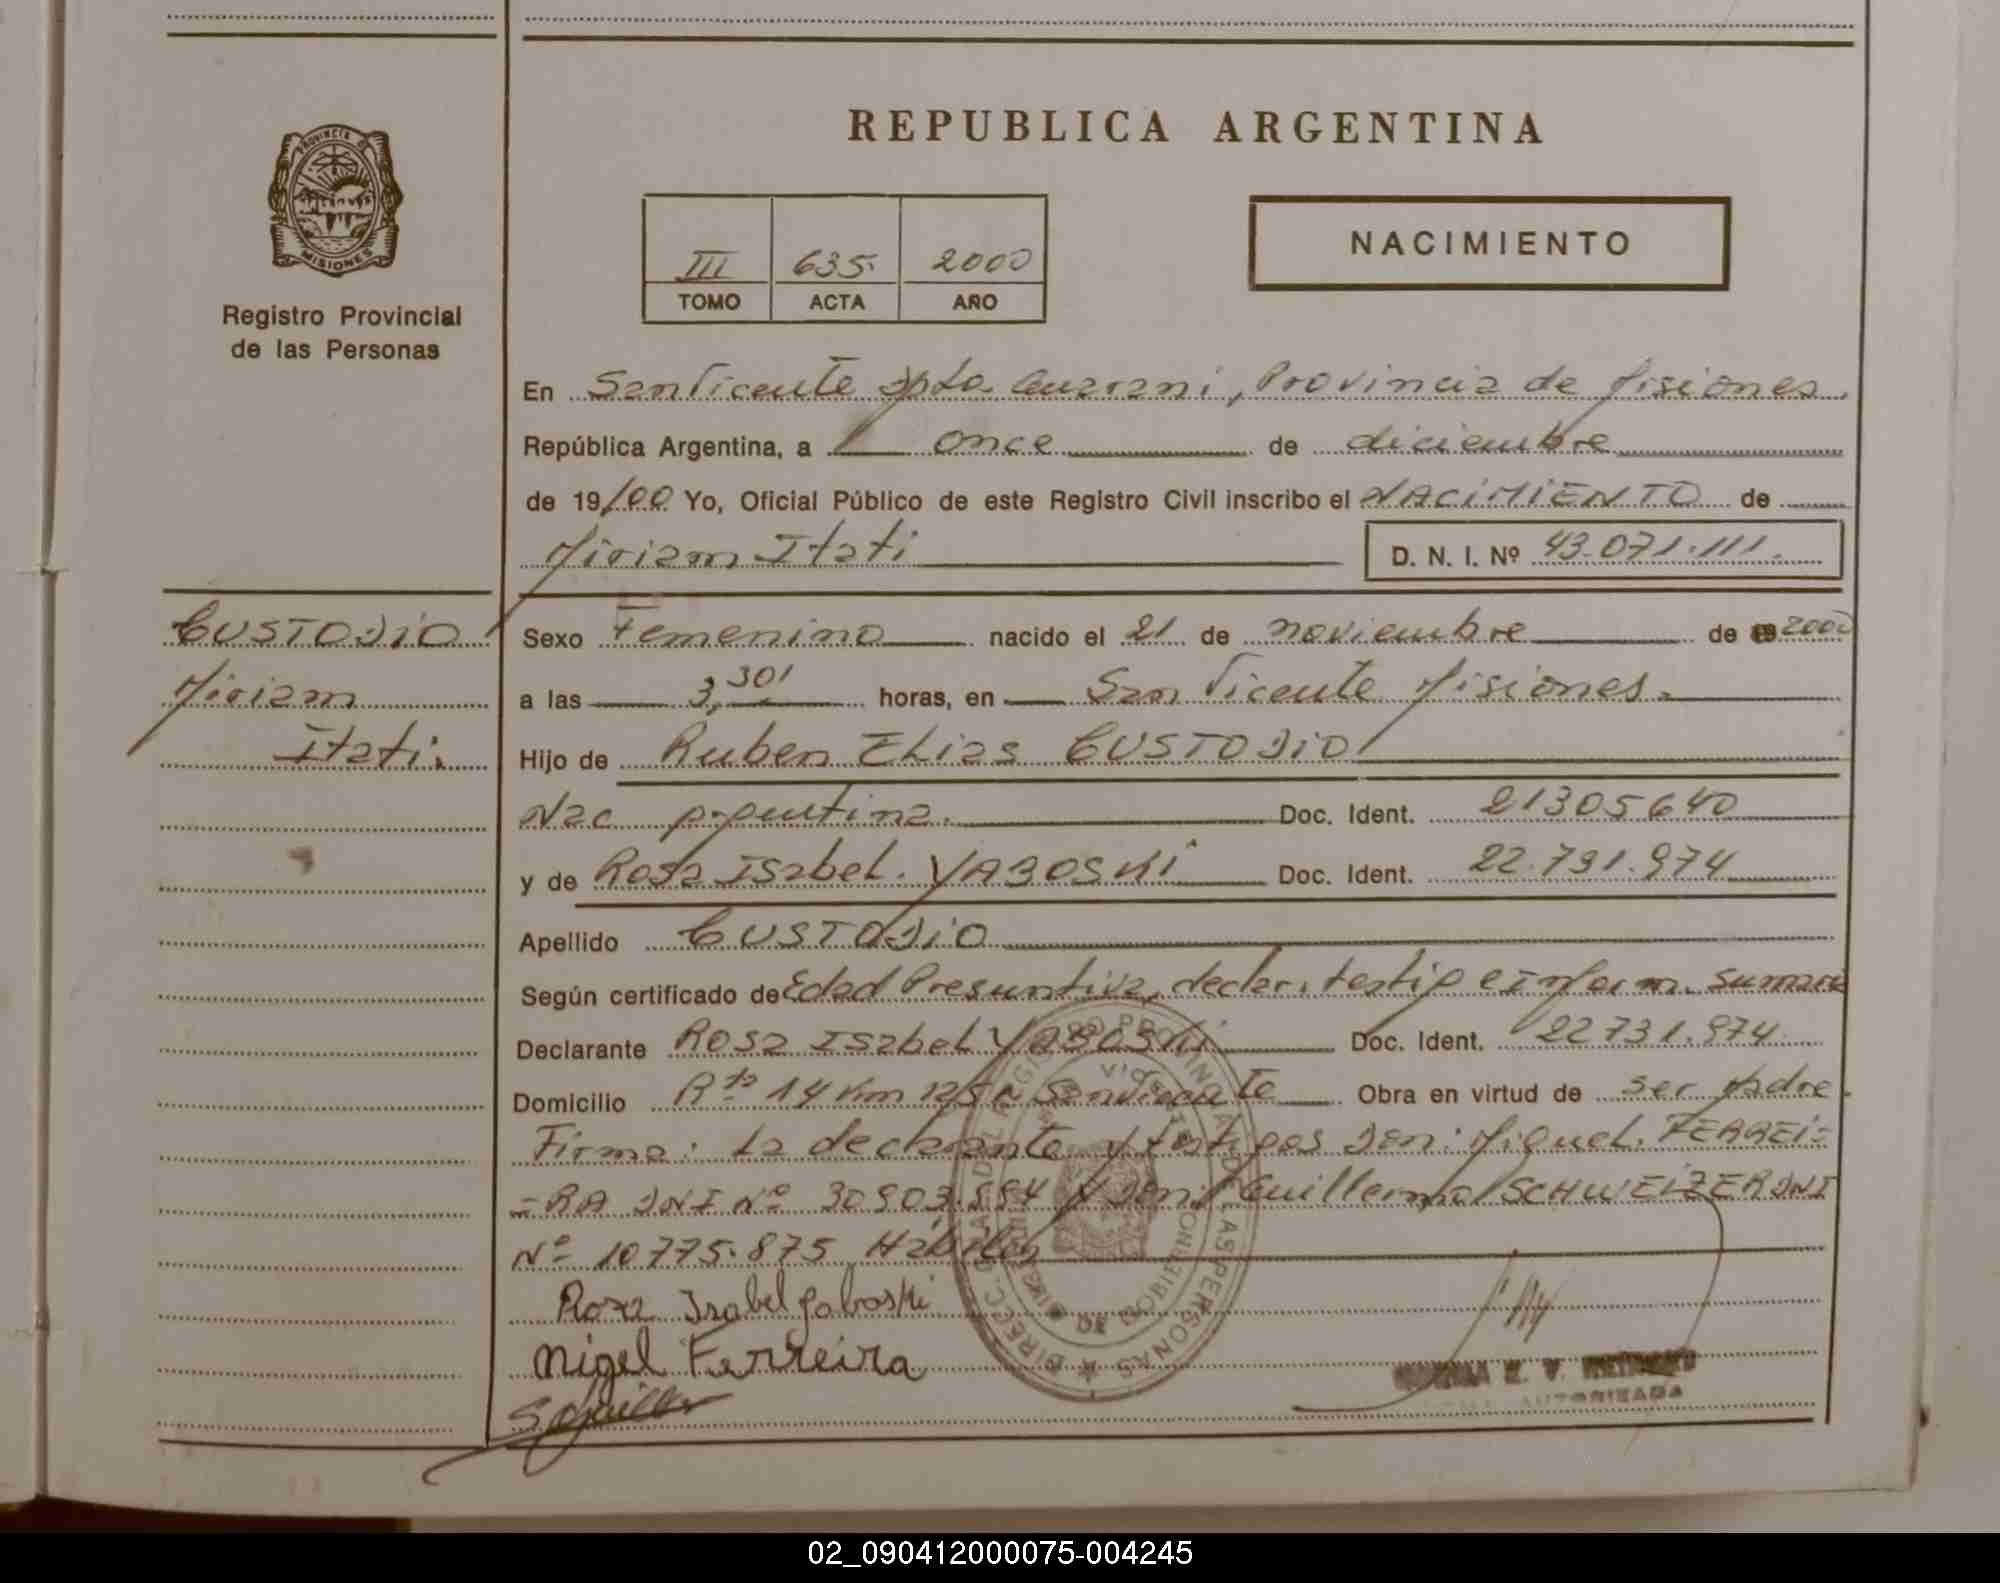 REPUBLICA ARGENTINA
PROVINCIA DE
MISIONES
Registro Provincial
de las Personas
III 635 2000
TOMO ACTA AÑO
NACIMIENTO
En San Vicente Dpto. Guarani, Provincia de Misiones.
República Argentina, a once de diciembre
de 19/00 Yo, Oficial Público de este Registro Civil inscribo el NACIMIENTO de
Miriam Itati
D. N. I. Nº 43.071.111.
CUSTODIO
Miriam
Itati.
Sexo Femenino nacido el 21 de noviembre de 2000
a las 3,30' horas, en San Vicente Misiones.
Hijo de Ruben Elias CUSTODIO
Nac argentina. Doc. Ident. 21305640
y de Rosa Isabel. YABOSKI Doc. Ident. 22.731.974
Apellido CUSTODIO
Según certificado de Edad Presuntiva, declar. testig e inform. sumaria
Declarante Rosa Isabel YABOSKI Doc. Ident. 22731.974
Domicilio Rta 14 Km 1251 San Vicente Obra en virtud de ser Madre.
Firma: La declarante y testigos Don: Miguel. FERREI=
=RA DNI Nº 30903.594 y Don: Guillermo SCHWEIZER DNI
Nº 10775.875 Hábiles
Rosa Isabel Yaboski
Migel Ferreira
DIRECC. GRAL. DEL REGISTRO PROVINCIAL DE LAS PERSONAS
AUTORIZADA
02_090412000075-004245